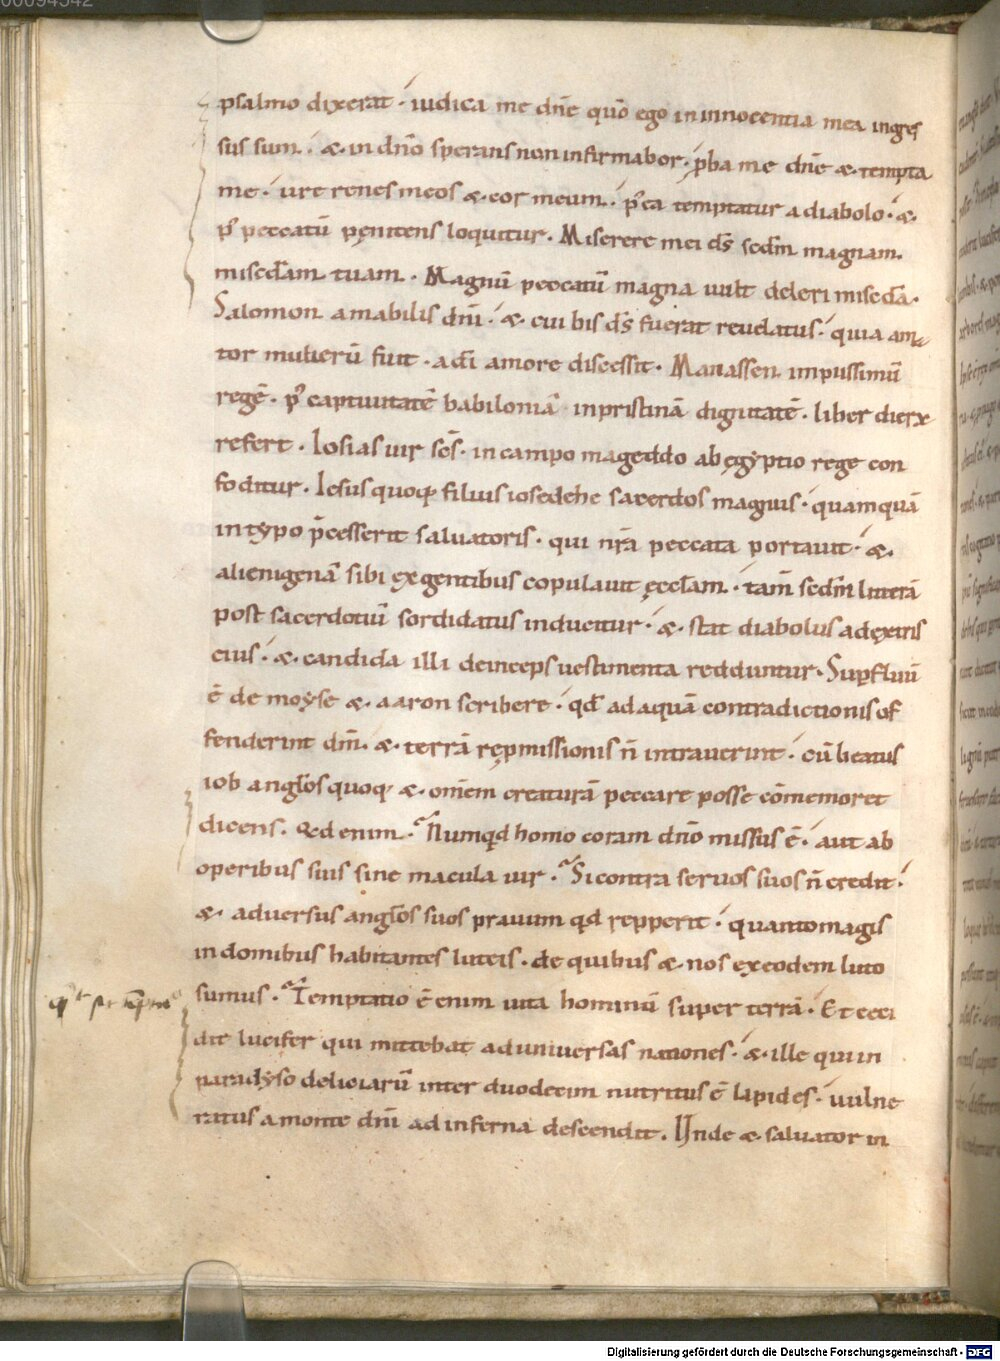 psalmo dixerat · iudica me dn̄e quō ego in innocentia mea ingres
sus sum · & · in dn̄o sperans non infirmabor · p̄ba me dn̄e & tempta
me · ure renes meos & cor meum · p̄ea temptatur a diabolo · & ·
p̄ peccatū pęnitens loquitur · Miserere mei ds̄ scdm̄ magnam
misc̄dam tuam · Magnū peccatū magna uult deleri misc̄da ·
Salomon amabilis dnī · & · cui bis ds̄ fuerat reuelatus · quia ama
tor mulierū fuit · a dī amore discessit · Manassen impiissimū
regē · p̄ captiuitatē babiloniā in pristinā dignitatē · liber dierꝝ
refert · Iosias uir sc̄s · in campo mageddo ab ęgyptio rege con
foditur · Iesus quoq; filius iosedehc sacerdos magnus · quamquā
in typo p̄cesserit saluatoris · qui nr̄a peccata portauit · & ·
alienigenā sibi ex gentibus copulauit ęccl̄am · tam̄ scdm̄ litterā
post sacerdotiū sordidatus inducitur · & · stat diabolus a dextris
eius · & · candida illi deinceps uestimenta redduntur · Supfluū
ē de moyse & · aaron scribere · qd̄ ad aquā contradictionis of
fenderint dm̄ · & · terrā ręp̱missionis n̄ intrauerint · cū beatus
iob anglōs quoq; & · omēm creaturā peccare posse cōmemoret
dicens · Qd enim · Numqd homo coram dn̄o missus ē · aut ab
operibus suis sine macula uir · Si contra seruos suos n̄ credit ·
& · aduersus anglōs suos prauum qd repperit · quanto magis
in domibus habitantes luteis · de quibus & nos ex eodem luto
sumus · Temptatio ē enim uita hominū super terrā · Et ceci
dit lucifer qui mittebat ad uniuersas nationes · & · ille qui in
paradyso deliciarū inter duodecim nutritus ē lapides · uulne
ratus a monte dnī ad inferna descendit · Unde & saluator in
Digitalisierung gefördert durch die Deutsche Forschungsgemeinschaft - DFG